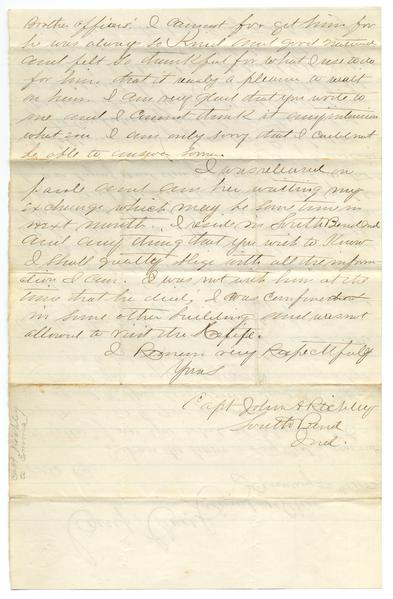 Brother officers. I cannot for get him for
he was always so Kind and good natured
and felt so thankful for what I use to do
for him that it realy a pleasure to wait
on him. I am very glad that you write to
me and I cannot think it any intrusion
what ever I am only sorry that I could not
be able to answer sooner.
I was released on
parole and am here waiting my
exchange which may be some time in
next month. I reside in South Bend Ind
and any thing that you wish to Know
I shall greatly oblige with all the inform-
ation I am. I was not with him at the
time that he died, I was confined
in some other building and was not
allowed to visit the
I Remain very Respectfully
Yours
Capt John A Richley
South Bend
Ind.
Capt Richley
to Emma